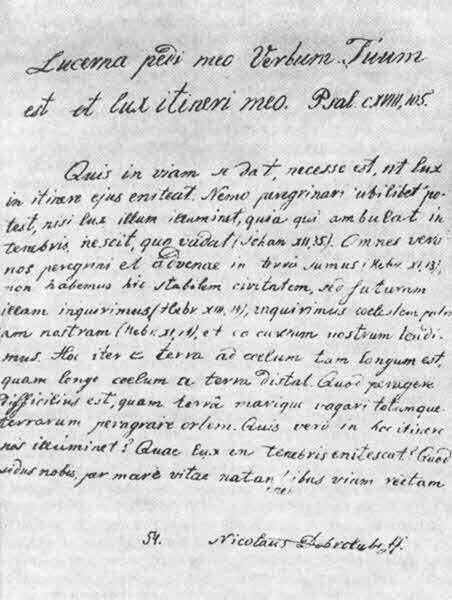 Lucerna pedi meo Verbum Tuum
est et lux itineri meo. Psal. CXVIII, 105.
Quis in viam se dat, necesse est, ut lux
in itinere ejus eniteat. Nemo peregrinari ubilibet po-
test, nisi lux illum illuminet, quia qui ambulat in
tenebris, nescit, quo vadat (Johan XII, 35). Omnes vero
nos peregrini et advenae in terra sumus (Hebr. XI, 13),
non habemus hic stabilem civitatem, sed futuram
illam inquirimus (Hebr XIII, 14), inquirimus coelestem patri-
am nostram (Hebr. XI, 16), et ea cursum nostrum tendi-
mus. Hoc iter e terra ad coelum tam longum est,
quam longe coelum a terra distat. Quod peragere
difficilius est, quam terrâ marique vagari totumque
terrarum peragrare orbem. Quis vero in hoc itinere
nos illuminet? Quae lux en tenebris enitescat? Quod
sidus nobis, per mare vitae natantibus viam rectam
54. Nicolaus